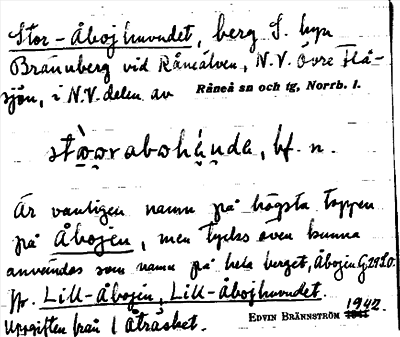 Stor-Åbojhuvudet, berg S. byn
Brännberg vid Råneälven, N.V. Övre Flå-
sjön, i N.V. delen av Råneå sn och tg, Norrb. l.
bf. n.
Är vanligen namn på högsta toppen
på Åbojen, men tycks även kunna
användas som namn på hela berget, Åbojen G29 L.O.
Jfr. Lill-Åbojen, Lill-Åbojhuvudet.
Uppgiften från 1 Åträsket. EDVIN BRÄNNSTRÖM 1942.